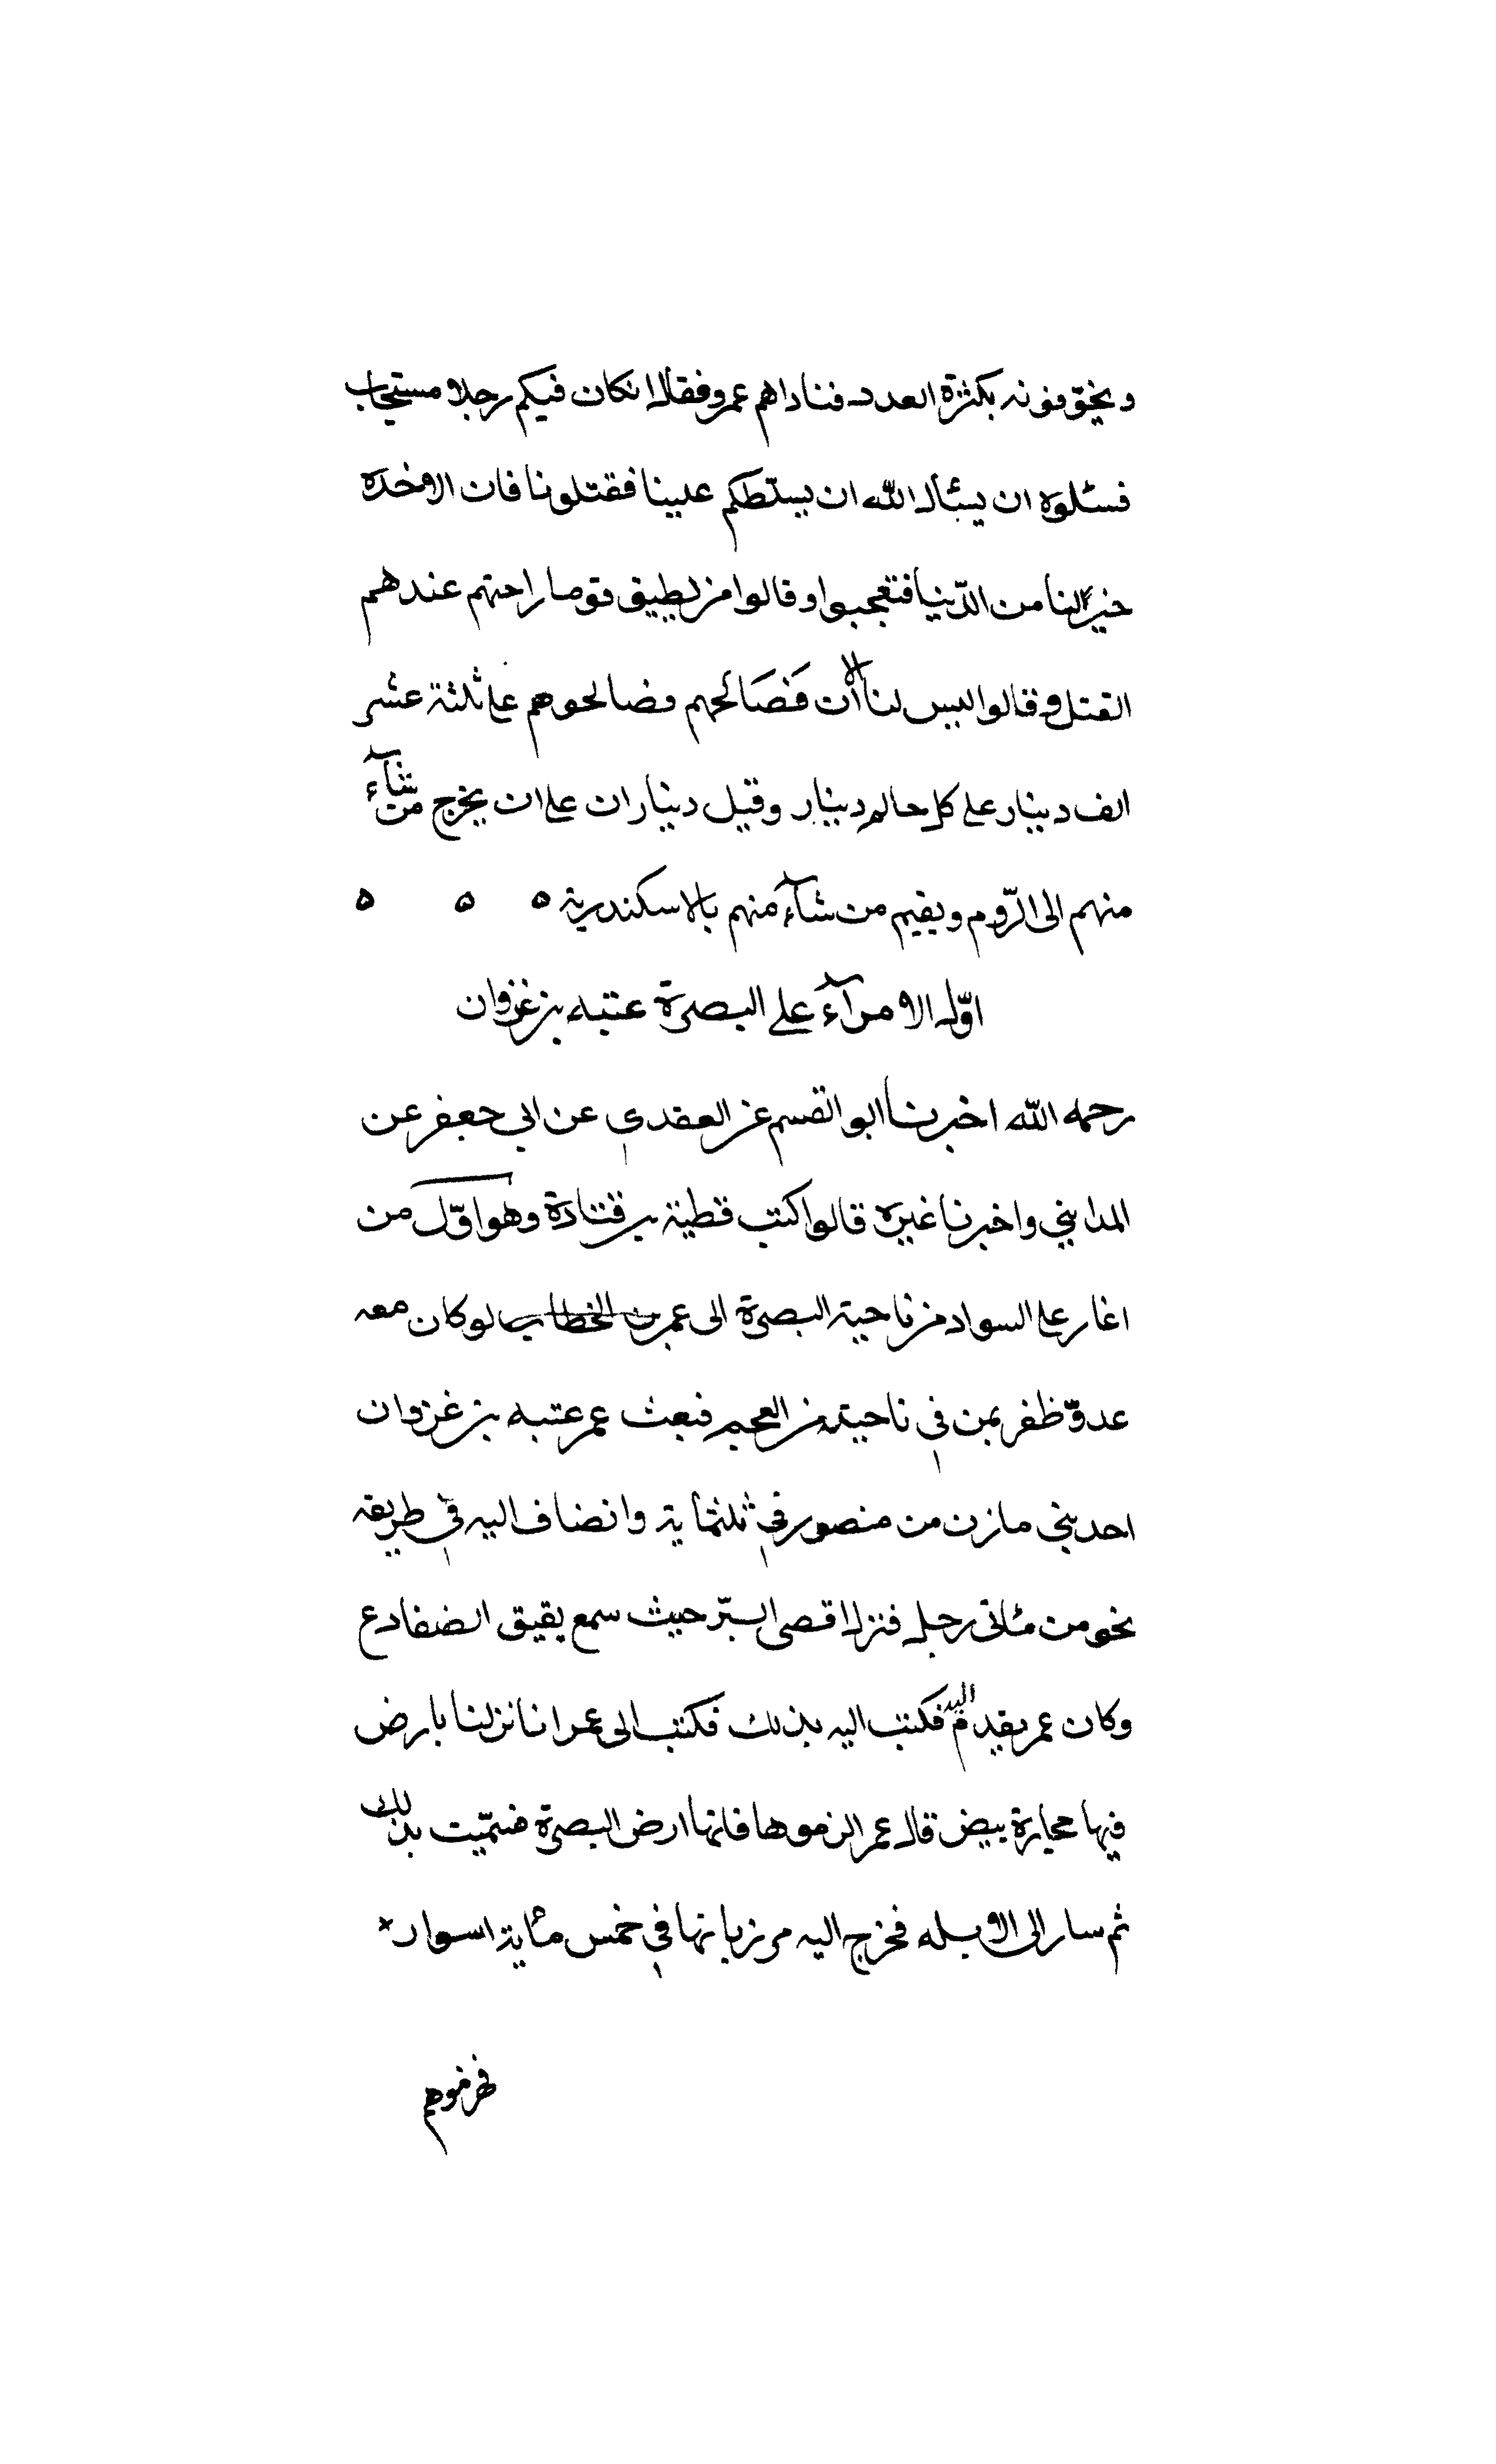 ويخوّفونه بكثرة العدد فناداهم عمرو فقال ان كان فيكم رجلا مستجاب
فسئلوه ان يسأل الله ان يسلّطكم علينا فقتلونا فان الاخرة
خيرٌ لنا من الدّنيا فتعجبوا وقالوا من يطيق قوما راحتهم عندهم
القتل وقالوا ليس لنا الا ان فصالحهم فصالحوهم على ثلثة عشر
الف دينار على كل حالم دينار وقيل ديناران على ان يخرج من شآء
منهم الى الرّوم ويقيم من شآء منهم بالاسكندرية ه ه ه
اوّل الامرآء على البصرة عتبه بن غزوان
رحمه الله اخبرنا ابو القسم عن العقدي عن ابي جعفر عن
المدايني واخبرنا غيره قالوا كتب قطبة بن قتادة وهو اوّل من
اغار على السواد من ناحية البصرة الى عمر بن الخطاب لو كان معه
عدوّ ظفر بمن في ناحيته من العجم فبعث عمر عتبه بن غزوان
احد بني مازن من منصور في ثلثمأية وانضاف اليه في طريقه
نحو من مئاتى رجل فنزل اقصى البرّ حيث سمع يقيق الضفادع
وكان عمر يقدم اليه فكتب اليه بذلك فكتب الى عمر انا نزلنا بارض
فيها حجارة بيض قال عمر الزموها فانها ارض البصرة فسمّيت بذلك
ثم سار الى الابله فخرج اليه مرزبانها في خمس مئاية اسوار
فهزموهم